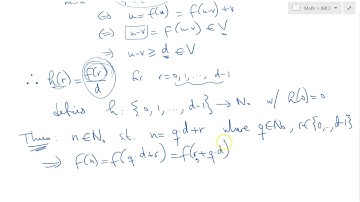 Math + IMO
m-n ⇔ u = f(u) = f(u-v)+v
⇔ u-v = f(u-v) ∈ V
⇔ u-v ≥ d ∈ V
∴ h(r) = f(r)/d for r = 0, 1, ..., d-1
defines h: {0, 1, ..., d-1} → N₀ w/ h(0)=0
Thus: n ∈ N₀ s.t. n = q·d+r where q ∈ N₀, r ∈ {0,..,d-1}
⇒ f(n) = f(q·d+r) = f(r+q·d)